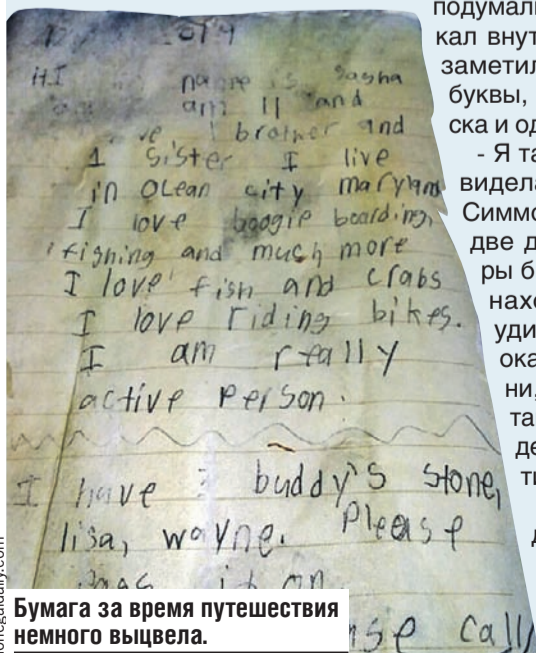 2019
HI name is Sasha
am 11 and
brother and
1 sister I live
in Ocean city maryland
I love boogie boarding,
fishing and much more
I love fish and crabs
I love riding bikes.
I am really
active person.
I have 3 buddy's stone,
lisa, wayne. Please
Pass it on
call
Бумага за время путешествия
немного выцвела.
подумали
кал внут
заметил
буквы,
ска и од
- Я та
видела
Симмо
две д
ры б
нахо
уди
ока
ни,
та
де
ти
д